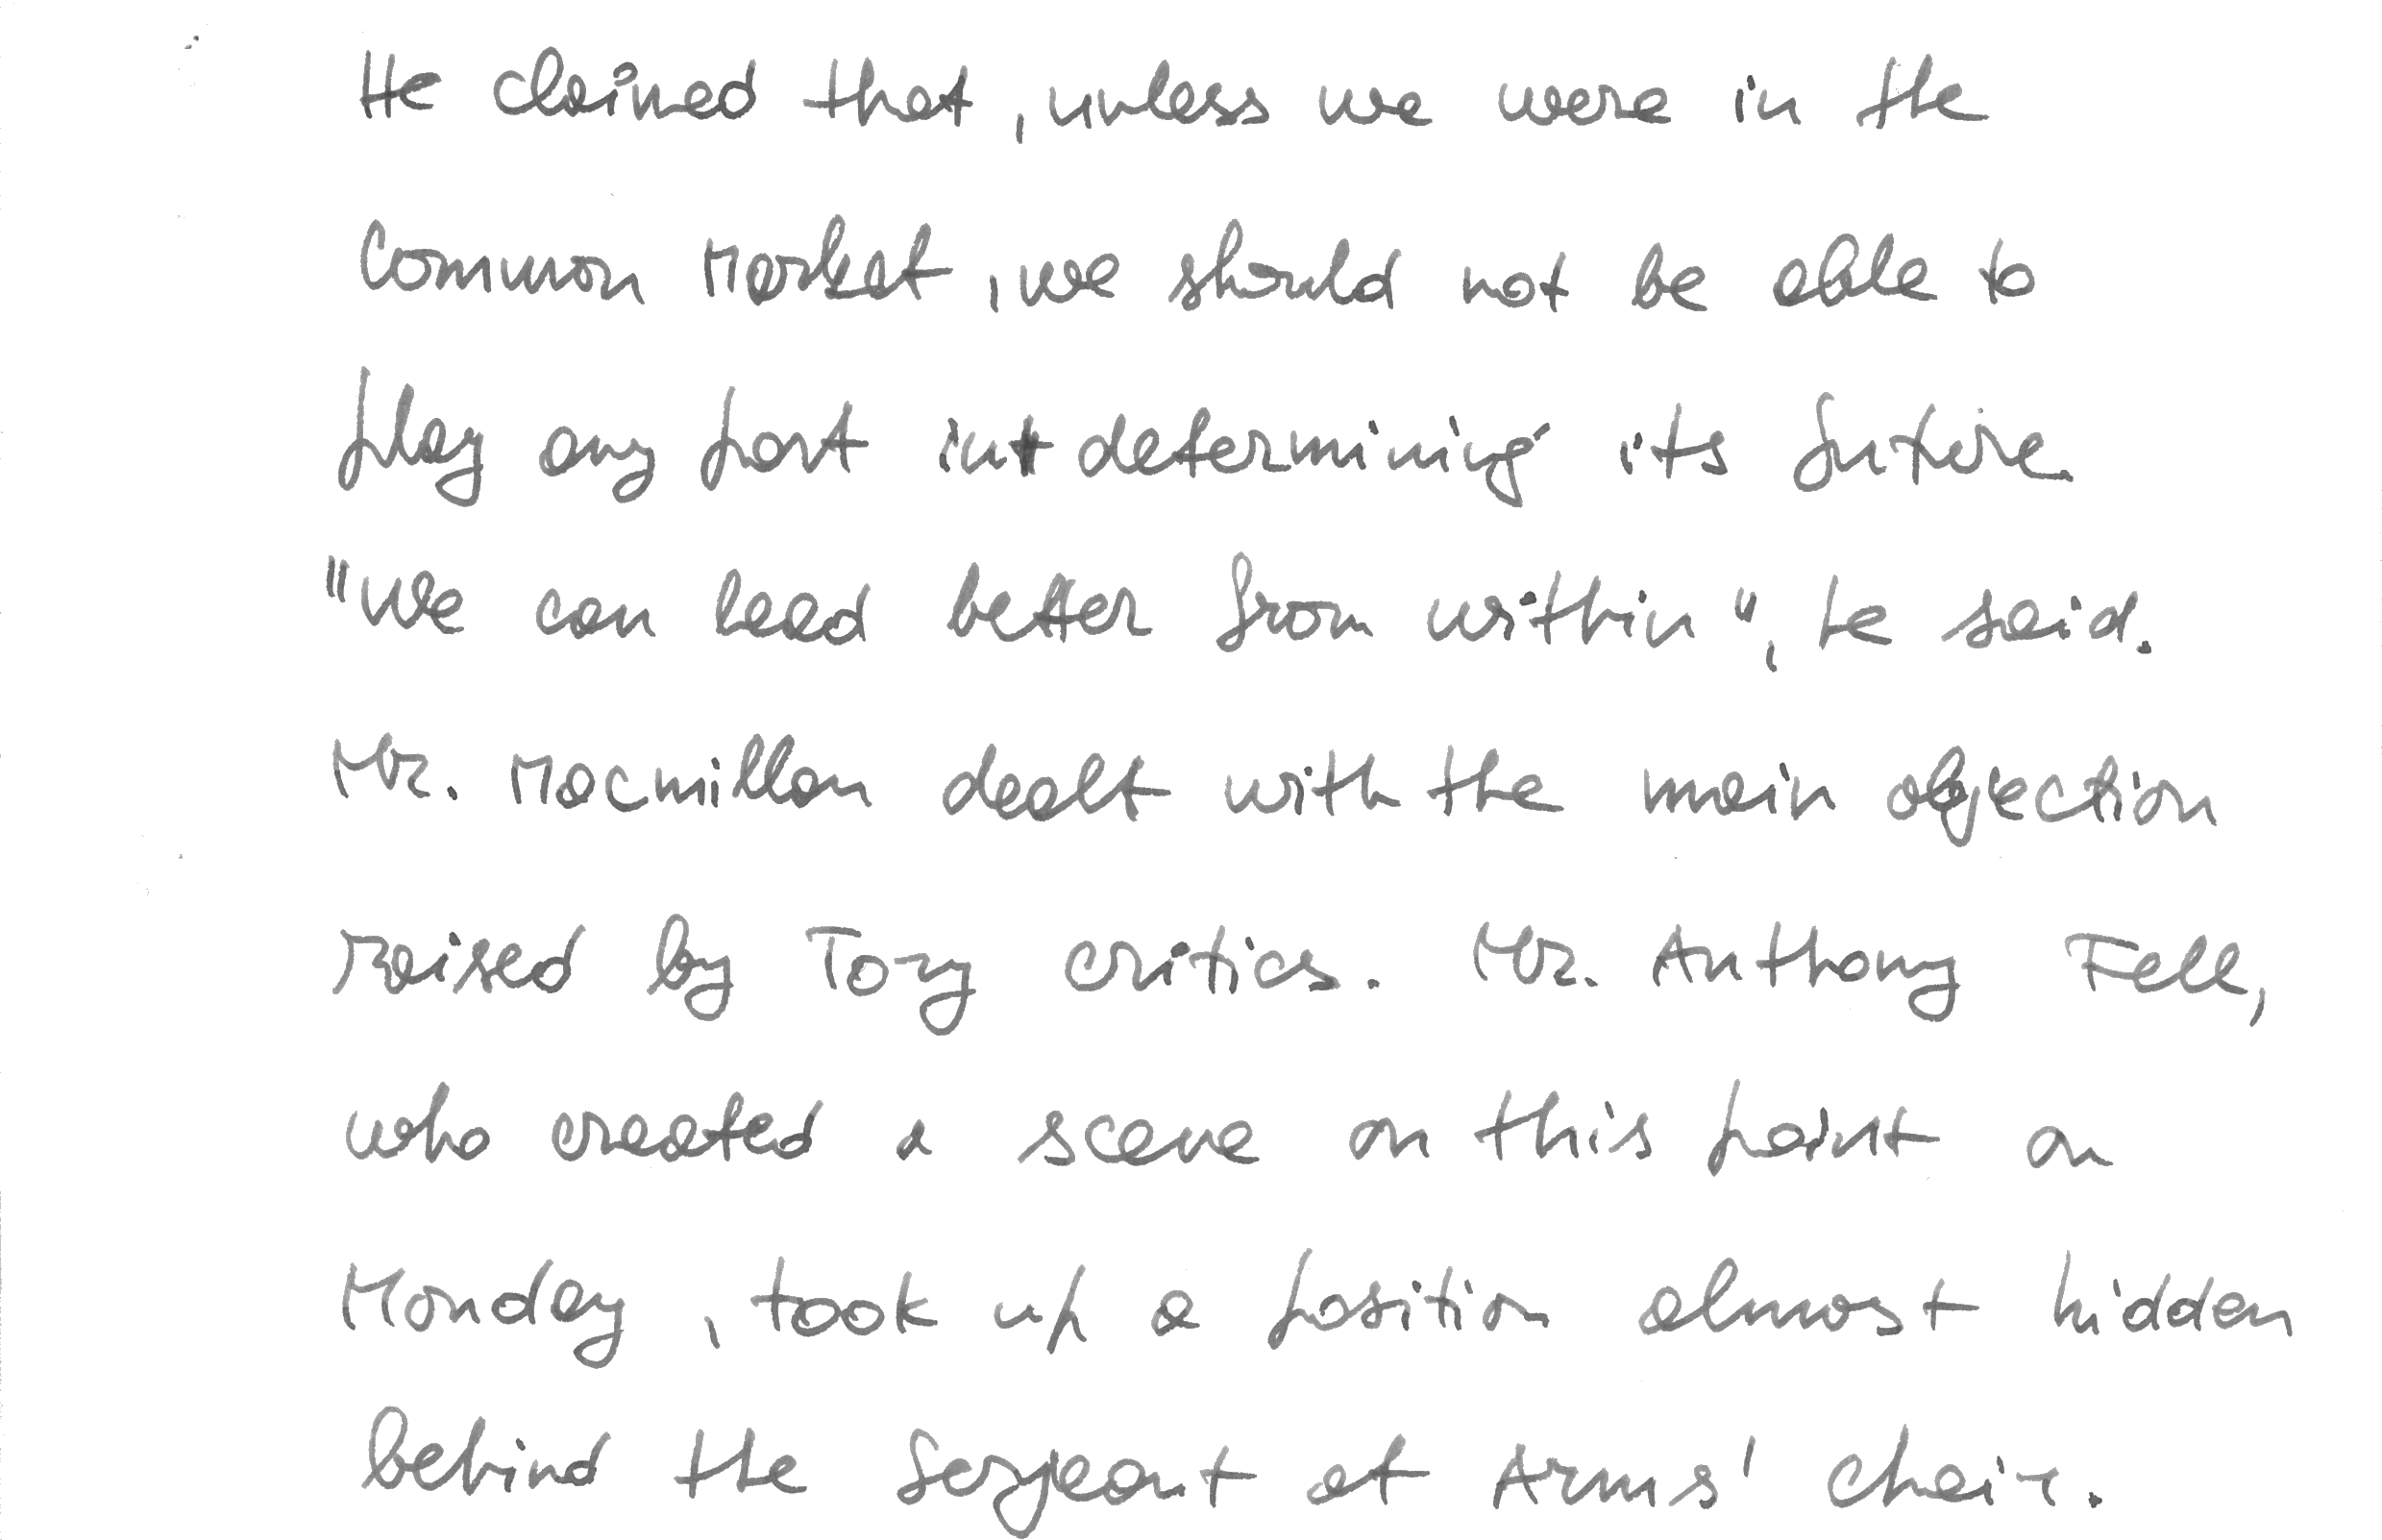 He claimed that, unless we were in the
Common Market, we should not be able to
play any part in determining its future.
"We can lead better from within", he said.
Mr. Macmillan dealt with the main objection
raised by Tory critics. Mr. Anthony Fell,
who created a scene on this point on
Monday, took up a position almost hidden
behind the Serjeant at Arms' chair.